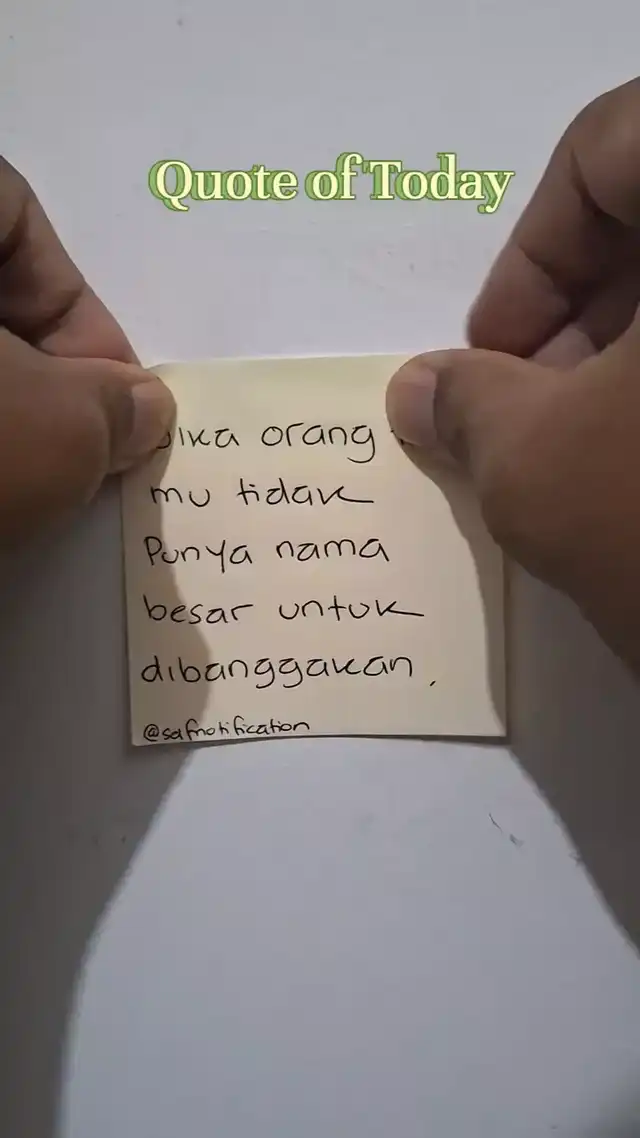 Quote of Today
Jika orang
mu tidak
Punya nama
besar untuk
dibanggakan,
@safnotification